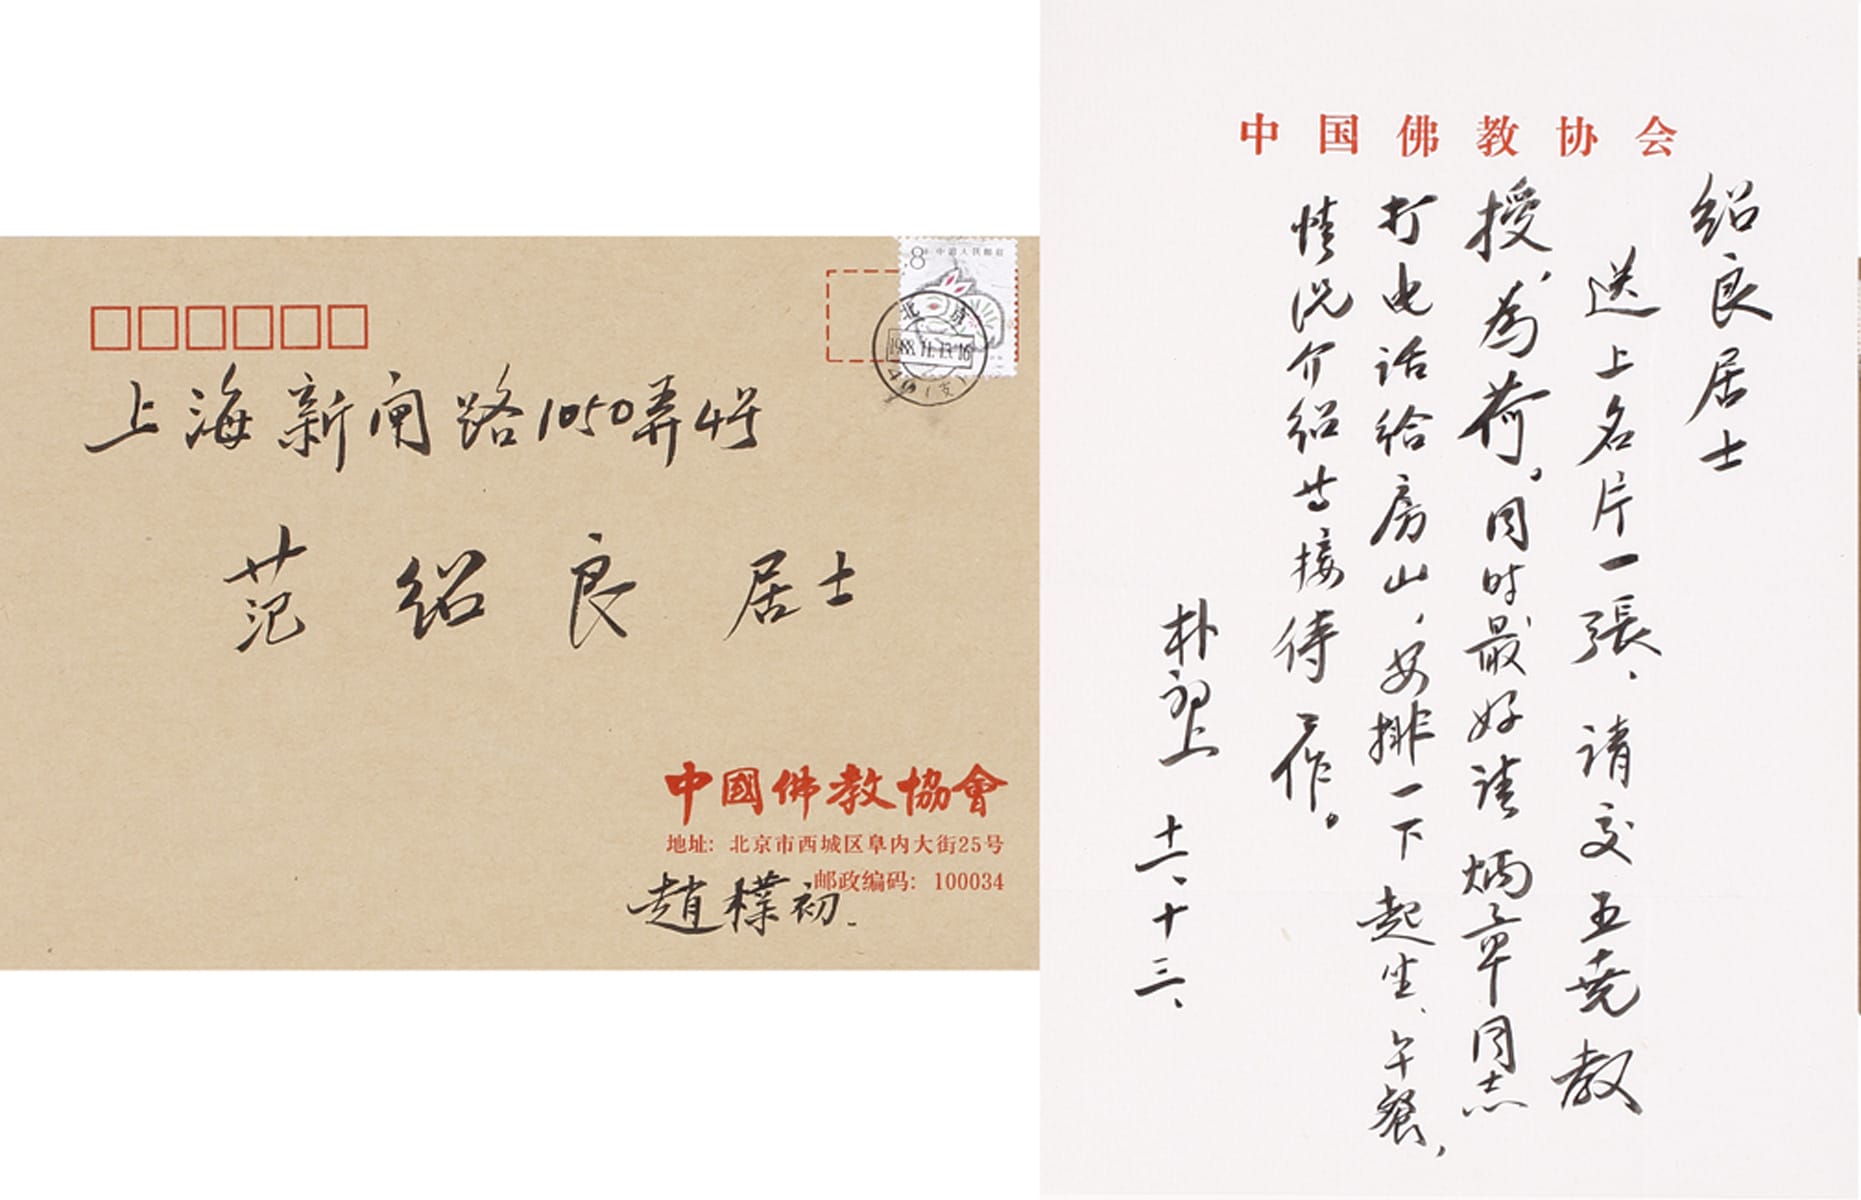 8分 中国人民邮政
北京
1988.11.13.16
(支)
上海新闸路1050弄4号
范绍良居士
中國佛教協會
地址：北京市西城区阜内大街25号
邮政编码：100034
趙樸初.
中国佛教协会
绍良居士
送上名片一張、请交五尧教
授，为荷。同时最好请炳章同志
打电话给房山，安排一下起坐、午餐，
情况介绍等接待工作。
朴初上 十一、十三、